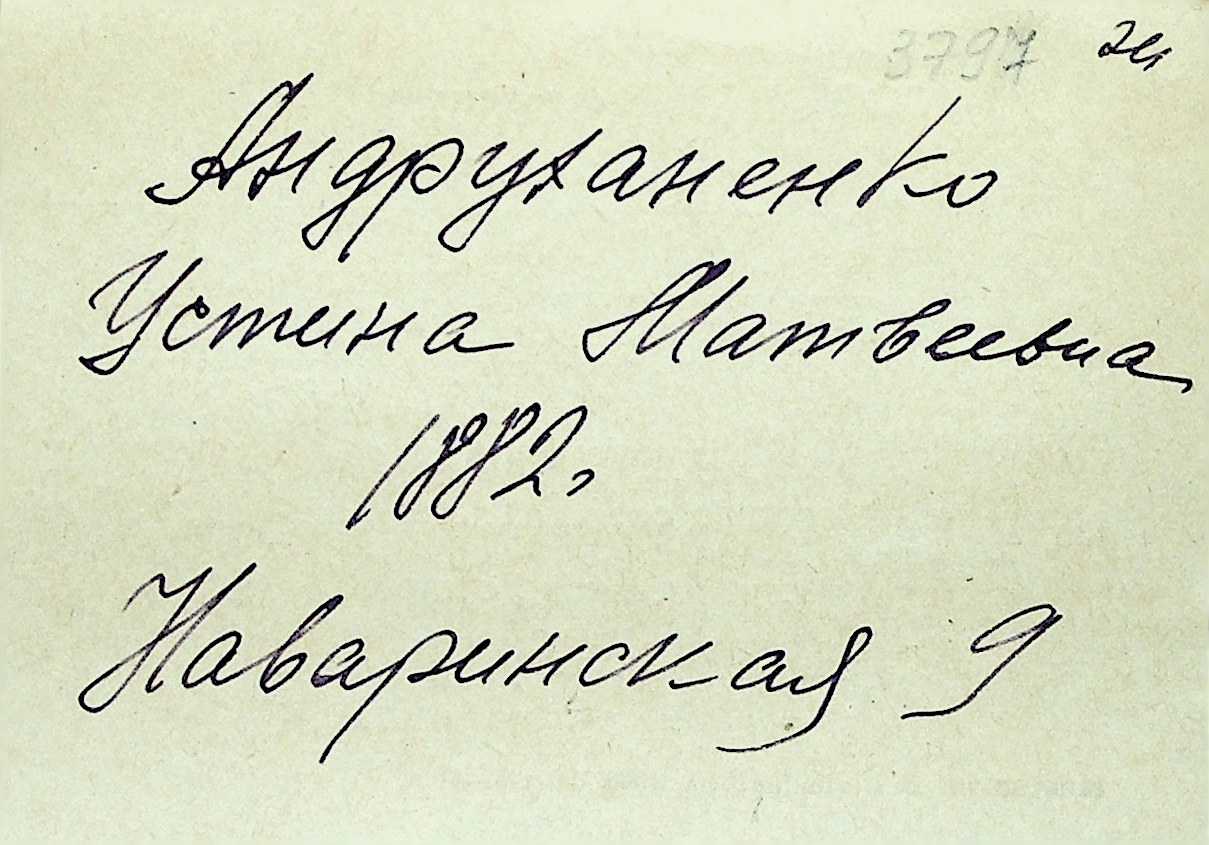 3797
Андруханенко
Устина Матвеевна
1882г
Наваринская 9